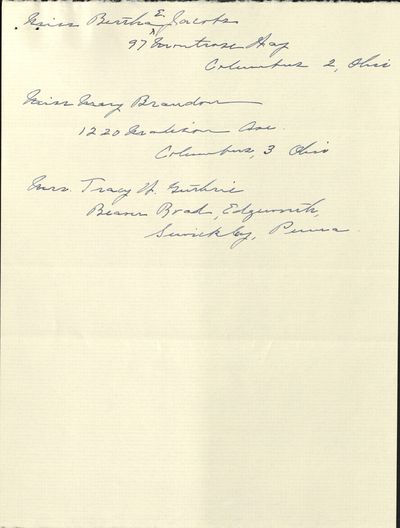 Miss Bertha E. Jacobs
97 Montrose Way
Columbus 2, Ohio
Miss Mary Brandon
1220 Madison Ave.
Columbus, 3 Ohio
Mrs. Tracy W. Guthrie
Beaver Road, Edgeworth,
Sewickley, Penna.